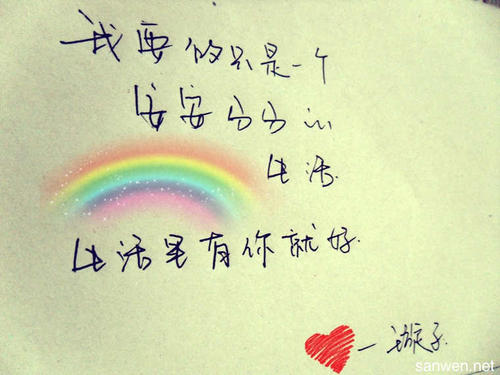 我要的只是一个
安安分分的
生活.
生活里有你就好.
— 子
sanwen.net